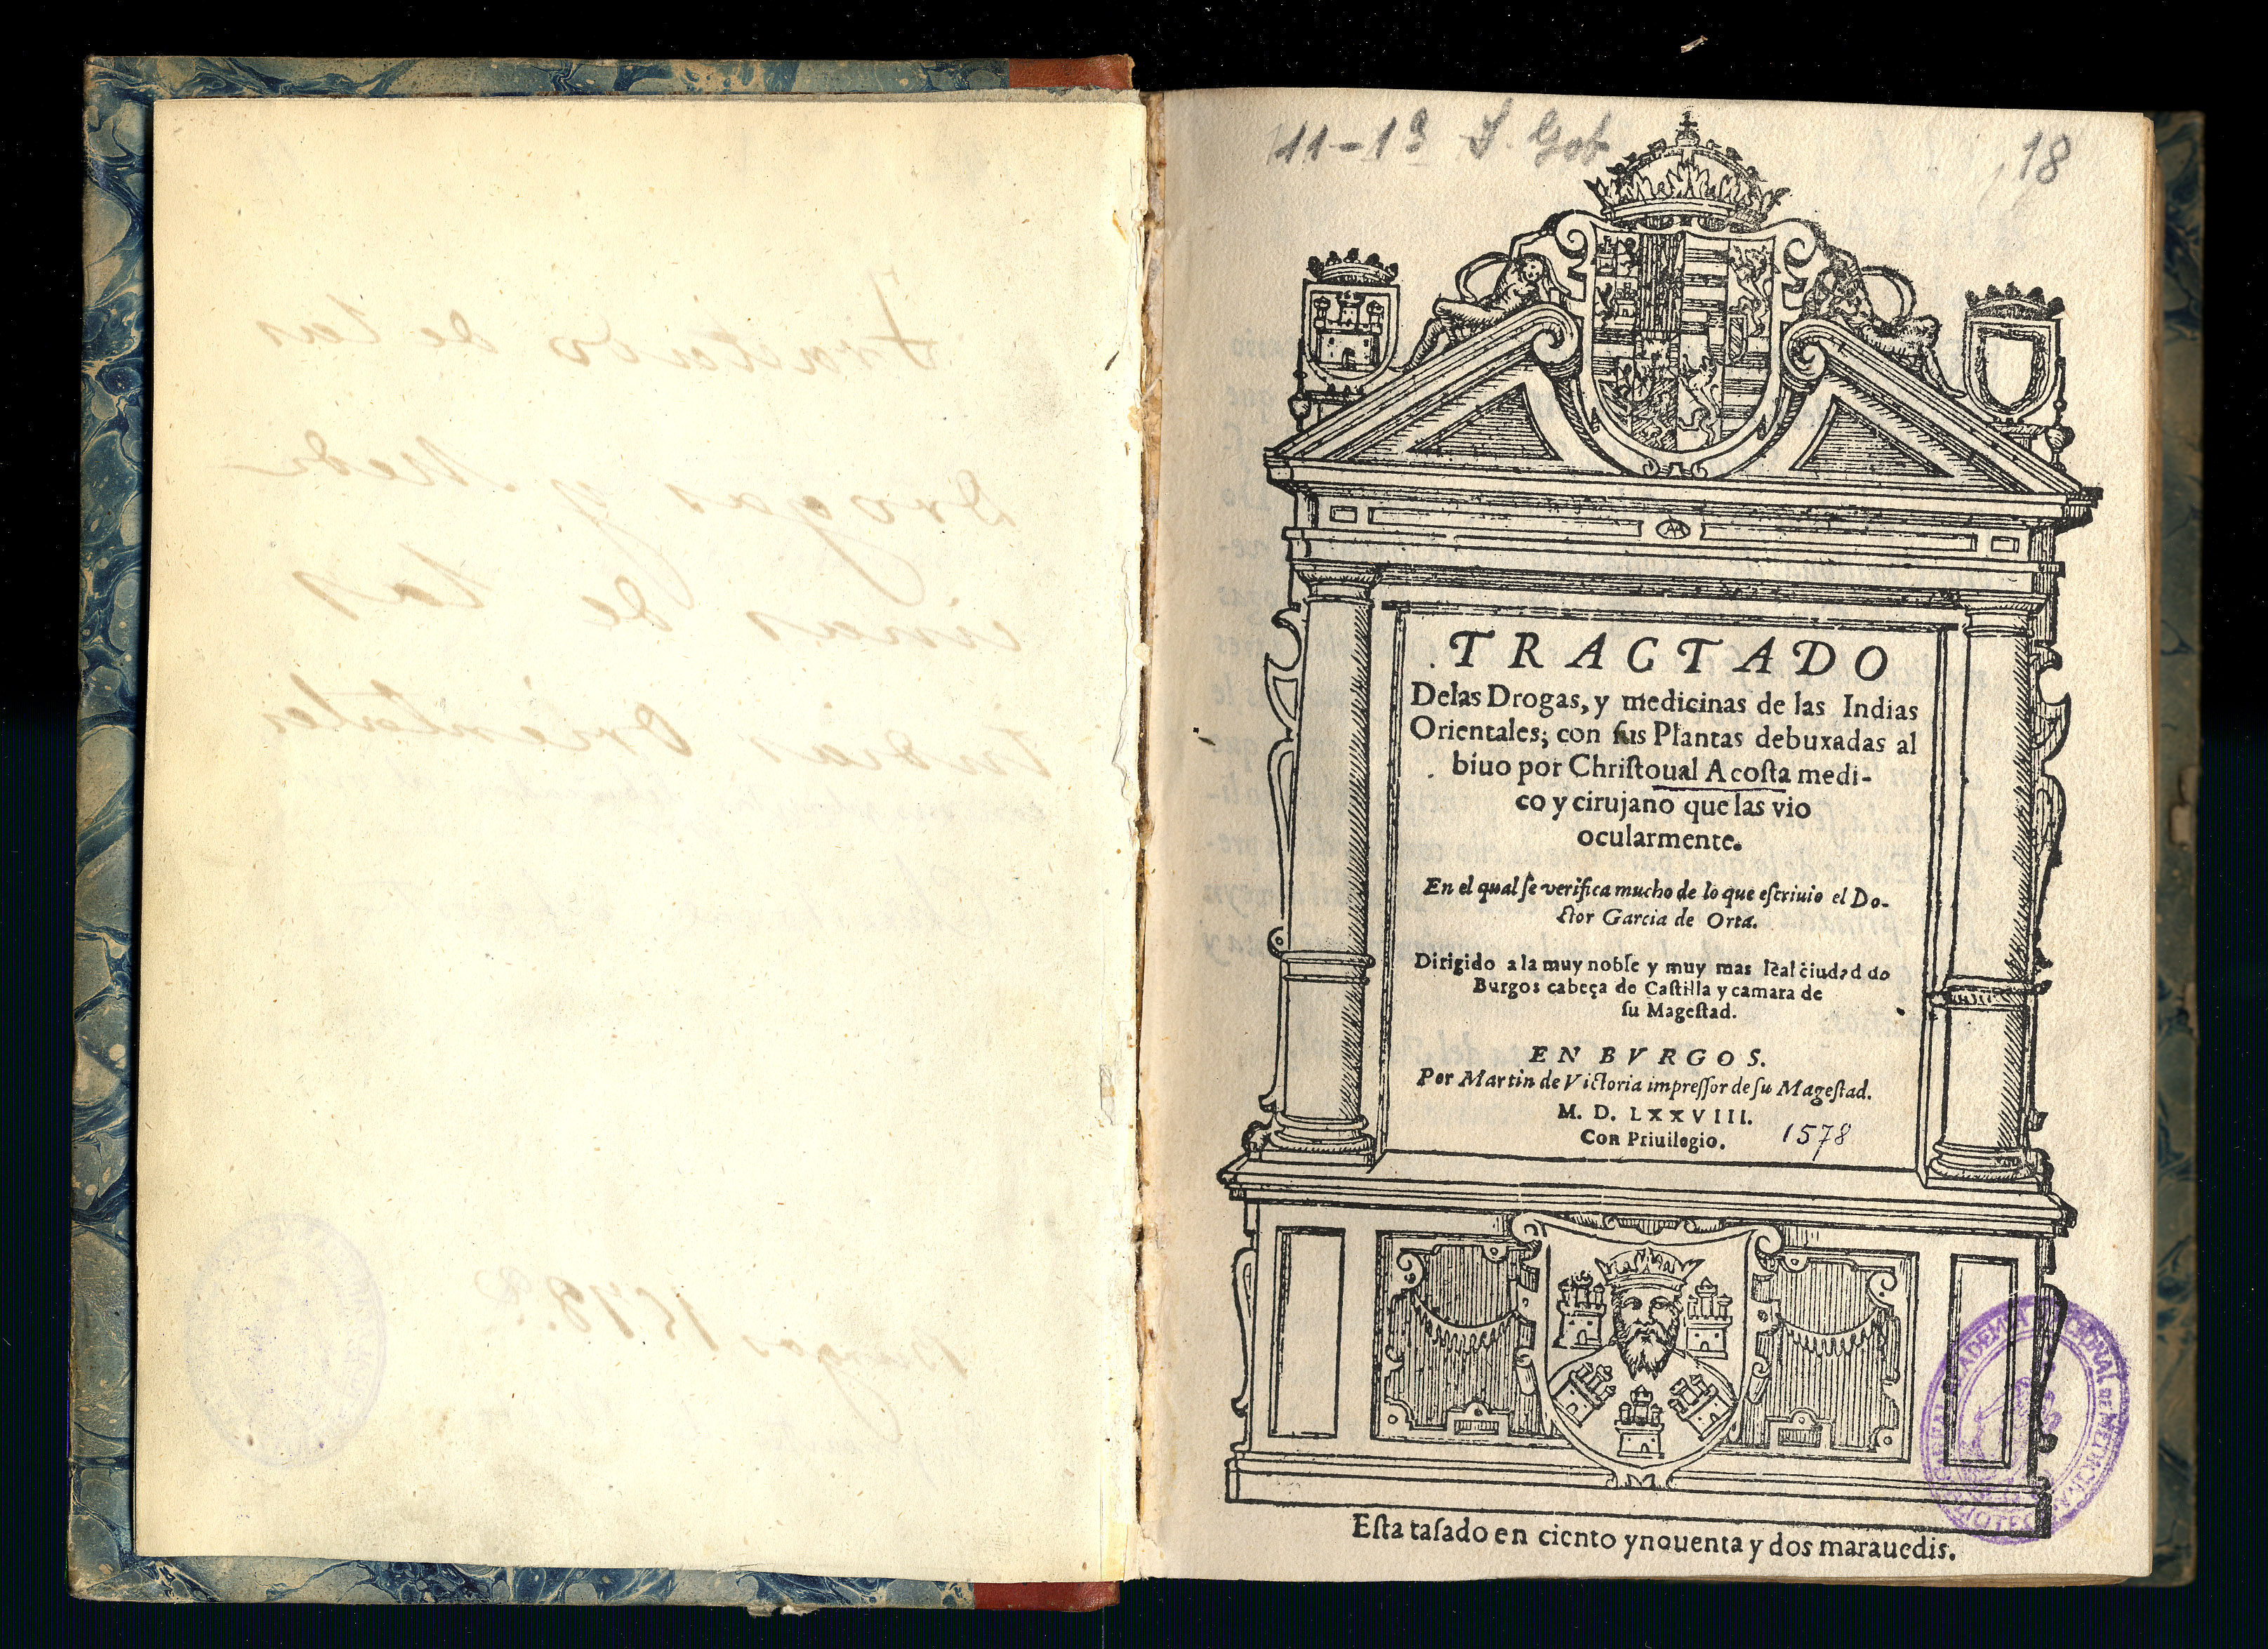 11-1ª S. Gob
18
TRACTADO
Delas Drogas, y medicinas de las Indias
Orientales; con ſus Plantas debuxadas al
biuo por Chriſtoual Acoſta medi-
co y cirujano que las vio
ocularmente.
En el qual ſe verifica mucho de lo que eſcriuio el Do-
ctor Garcia de Orta.
Dirigido a la muy noble y muy mas leal ciudad de
Burgos cabeça de Caſtilla y camara de
ſu Mageſtad.
EN BVRGOS.
Por Martin de Victoria impreſſor de ſu Mageſtad.
M. D. LXXVIII.
Con Priuilegio. 1578
Eſta taſado en ciento ynouenta y dos marauedis.
REAL ACADEMIA NACIONAL DE MEDICINA
BIBLIOTECA
Tractado de las
Drogas y Medi
cinas de las
Indias Orientales
Burgos 1578